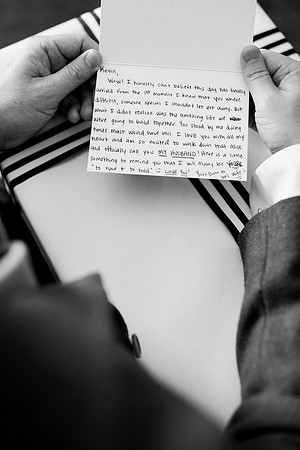 Kevin,
Wow! I honestly can't believe this day has finally
arrived. From the 1st moment I knew that you where
different, someone special I shouldn't let get away. But
what I didn't realize was the amazing life we
were going to build together. You stood by me during
times most would have run. I love you with all my
heart and am so excited to walk down that aisle
and officially call you MY HUSBAND! Here is a little
something to remind you that I will always be
"to have & to hold" :) Love You!